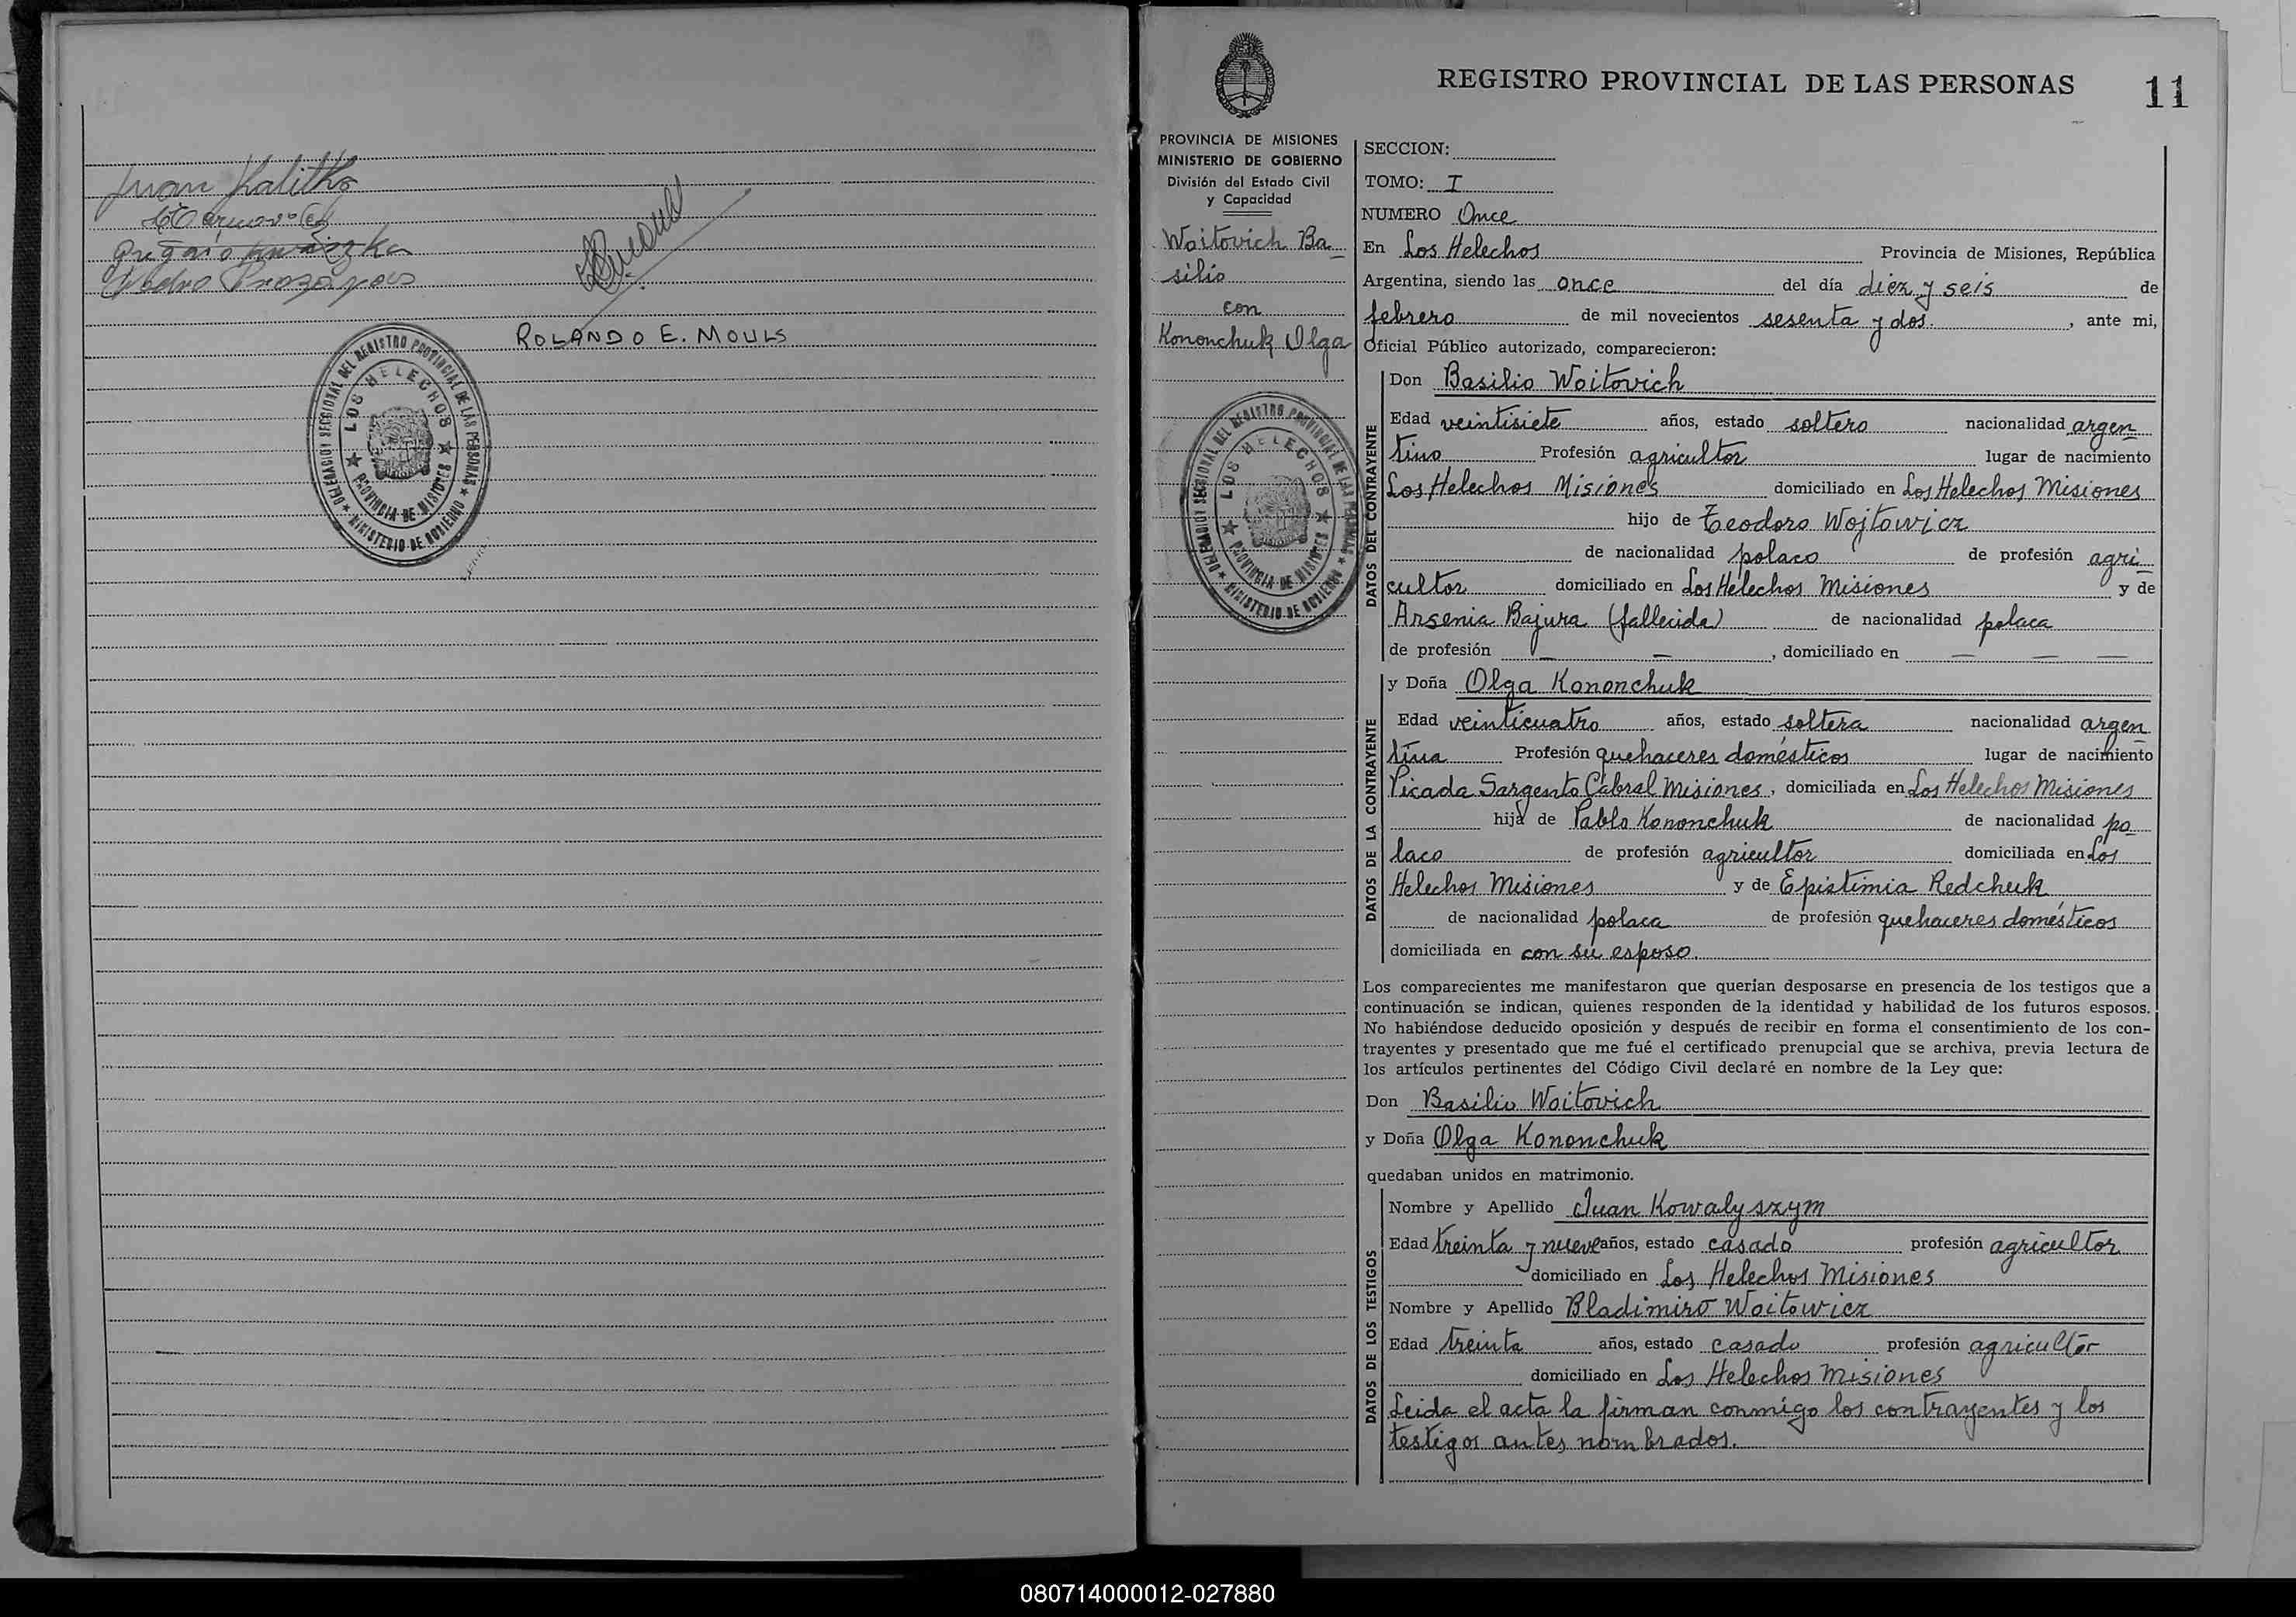 Juan Kalitko
Pedro
ROLANDO E. MOULS
DELEGACION SECCIONAL DEL REGISTRO PROVINCIAL DE LAS PERSONAS
LOS HELECHOS
PROVINCIA DE MISIONES
MINISTERIO DE GOBIERNO
REGISTRO PROVINCIAL DE LAS PERSONAS 11
PROVINCIA DE MISIONES
MINISTERIO DE GOBIERNO
División del Estado Civil
y Capacidad
Woitovich Ba-
silio
con
Kononchuk Olga
DELEGACION SECCIONAL DEL REGISTRO PROVINCIAL DE LAS PERSONAS
LOS HELECHOS
PROVINCIA DE MISIONES
MINISTERIO DE GOBIERNO
SECCION:
TOMO: I
NUMERO Once
En Los Helechos Provincia de Misiones, República
Argentina, siendo las once del día diez y seis de
febrero de mil novecientos sesenta y dos. , ante mi,
Oficial Público autorizado, comparecieron:
DATOS DEL CONTRAYENTE
Don Basilio Woitovich
Edad veintisiete años, estado soltero nacionalidad argen-
tino Profesión agricultor lugar de nacimiento
Los Helechos Misiones domiciliado en Los Helechos Misiones
hijo de Teodoro Wojtowicz
de nacionalidad polaco de profesión agri-
cultor domiciliado en Los Helechos Misiones y de
Arsenia Bajura (fallecida) de nacionalidad polaca
de profesión — — , domiciliado en — — —
DATOS DE LA CONTRAYENTE
y Doña Olga Kononchuk
Edad veinticuatro años, estado soltera nacionalidad argen-
tina Profesión quehaceres domésticos lugar de nacimiento
Picada Sargento Cabral Misiones, domiciliada en Los Helechos Misiones
hija de Pablo Kononchuk de nacionalidad po-
laco de profesión agricultor domiciliada en Los
Helechos Misiones y de Epistimia Redchuk
de nacionalidad polaca de profesión quehaceres domésticos
domiciliada en con su esposo.
Los comparecientes me manifestaron que querian desposarse en presencia de los testigos que a
continuación se indican, quienes responden de la identidad y habilidad de los futuros esposos.
No habiéndose deducido oposición y después de recibir en forma el consentimiento de los con-
trayentes y presentado que me fué el certificado prenupcial que se archiva, previa lectura de
los artículos pertinentes del Código Civil declaré en nombre de la Ley que:
Don Basilio Woitovich
y Doña Olga Kononchuk
quedaban unidos en matrimonio.
DATOS DE LOS TESTIGOS
Nombre y Apellido Juan Kowalyszym
Edad treinta y nueve años, estado casado profesión agricultor
domiciliado en Los Helechos Misiones
Nombre y Apellido Bladimiro Woitowicz
Edad treinta años, estado casado profesión agricultor
domiciliado en Los Helechos Misiones
Leida el acta la firman conmigo los contrayentes y los
testigos antes nombrados.
080714000012-027880